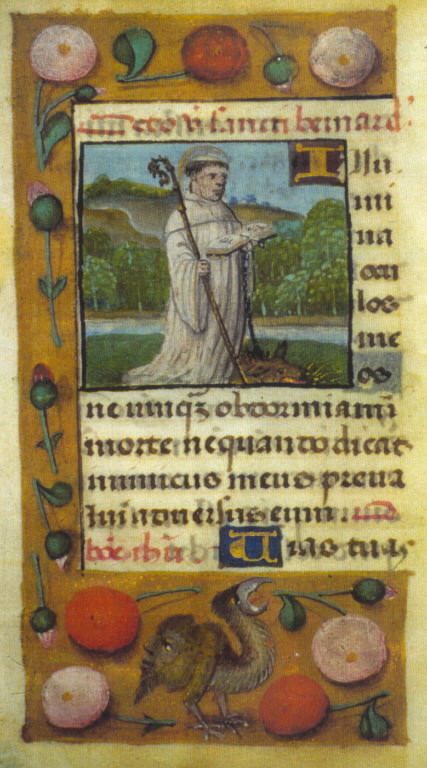 sancti bernard
Illu
mi
na
ocu
los
me
os
ne umqz obdormiam i
morte ne quando dicat
inimicus meus preua
lui aduersus eum.
Uias tuas